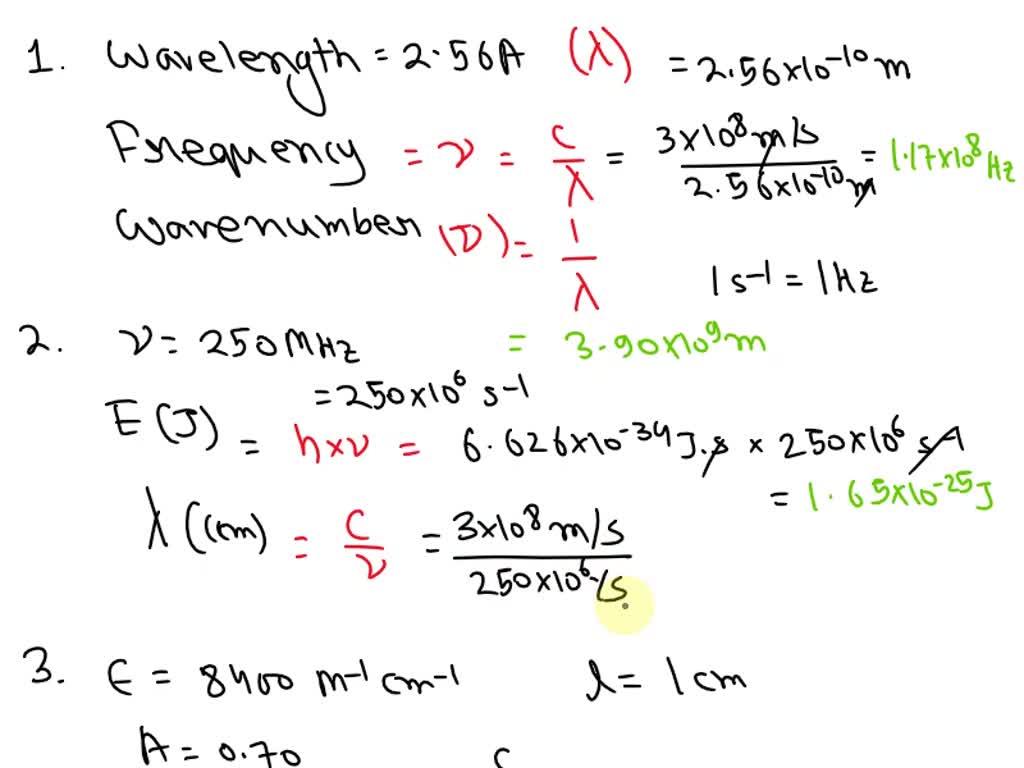 1. Wavelength = 2.56A (λ) = 2.56×10⁻¹⁰ m
Frequency = ν = c/λ = 3×10⁸ m/s / 2.56×10⁻¹⁰ m = 1.17×10⁸ Hz
Wavenumber (ν̅) = 1/λ
1 s⁻¹ = 1Hz
2. ν = 250MHz = 3.90×10⁹ m
= 250×10⁶ s⁻¹
E (J) = h×ν = 6.626×10⁻³⁴ J.s × 250×10⁶ s⁻¹
= 1.65×10⁻²⁵ J
λ (cm) = c/ν = 3×10⁸ m/s / 250×10⁶ /s
3. ϵ = 8400 m⁻¹ cm⁻¹ l = 1 cm
A = 0.70